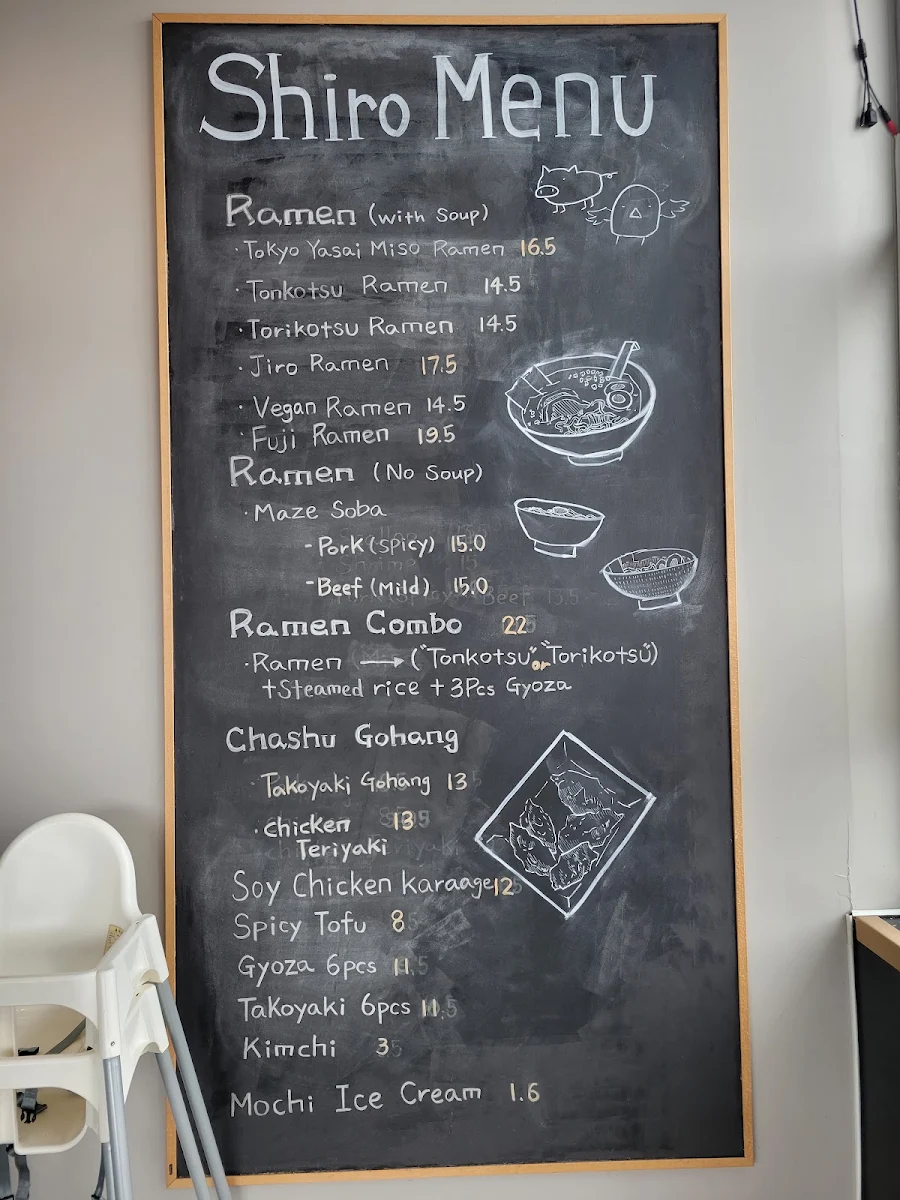 Shiro Menu
Ramen (with Soup)
· Tokyo Yasai Miso Ramen 16.5
· Tonkotsu Ramen 14.5
· Torikotsu Ramen 14.5
· Jiro Ramen 17.5
· Vegan Ramen 14.5
· Fuji Ramen 19.5
Ramen (No Soup)
· Maze Soba
- Pork (spicy) 15.0
- Beef (Mild) 15.0
Ramen Combo 22
· Ramen → ("Tonkotsu" or "Torikotsu")
+Steamed rice + 3Pcs Gyoza
Chashu Gohang
· Takoyaki Gohang 13
· chicken 13
Teriyaki
Soy Chicken karaage 12
Spicy Tofu 8
Gyoza 6pcs 11
Takoyaki 6pcs 11
Kimchi 3
Mochi Ice Cream 1.6